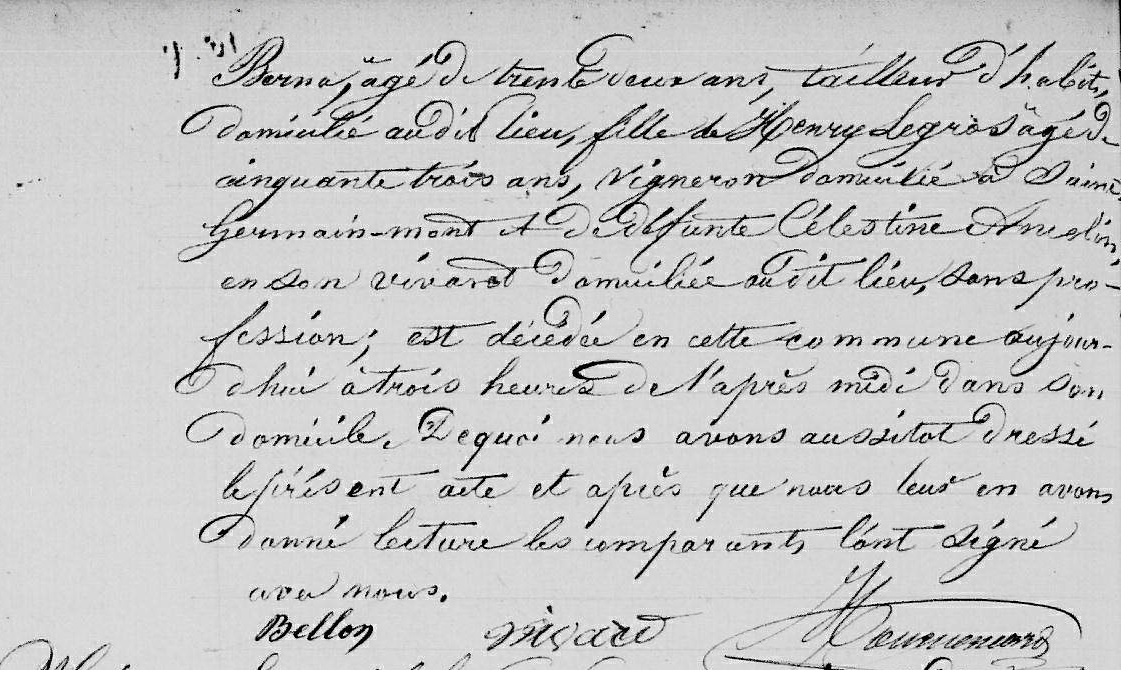 Berna, âgé de trente deux ans, tailleur d'habits,
domicilié audit lieu, fille de Henry Legros âgé de
cinquante trois ans, vigneron domicilié à Saint
Germain-mont et de défunte Célestine Amelin,
en son vivant domiciliée audit lieu, sans pro-
fession; est décédée en cette commune aujour-
d'hui à trois heures de l'après midi dans son
domicile. De quoi nous avons aussitot dressé
le présent acte et après que nous leur en avons
donné lecture les comparants l'ont signé
avec nous.
Bellon